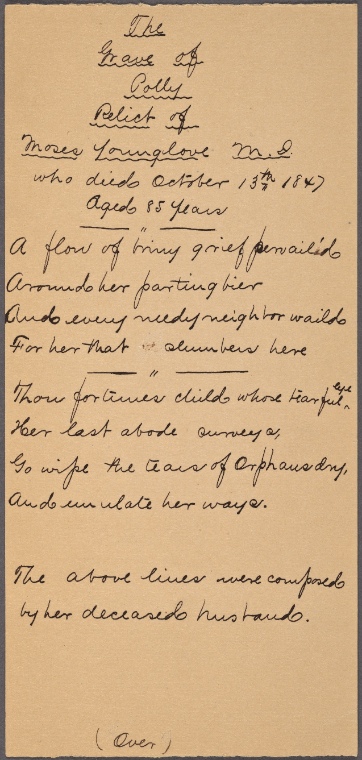 The
Grave of
Polly
Relict of
Moses Younglove M.D.
who died October 13th 1847
Aged 85 Years
"
A flow of briny grief pervail'd
Around her parting bier
And every needy neighbor waild
For her that slumbers here
"
Thou fortunes child whose tearful eye
Her last abode surveys,
Go wipe the tears of Orphans dry,
And emulate her ways.
The above lines were composed
by her deceased husband.
(Over)